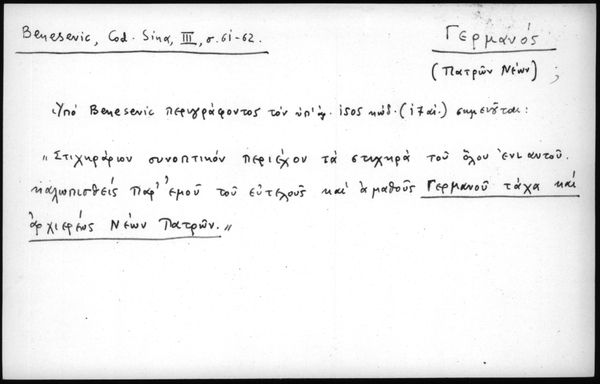 Benesevic, Cod. Sina, III, σ. 61-62.
Γερμανός
(Πατρῶν Νέων) ;
Ὑπό Benesevic περιγράφοντος τόν ὑπ' ἀρ. κώδ. (17 αἰ.) σημειοῦται:
„ Στιχηράριον συνοπτικόν περιέχον τά στιχηρά τοῦ ὅλου ἐνιαυτοῦ.
καλωπισθείς παρ' ἐμοῦ τοῦ εὐτελοῦς καί ἀμαθοῦς Γερμανοῦ τάχα καί
ἀρχιερέως Νέων Πατρῶν. „